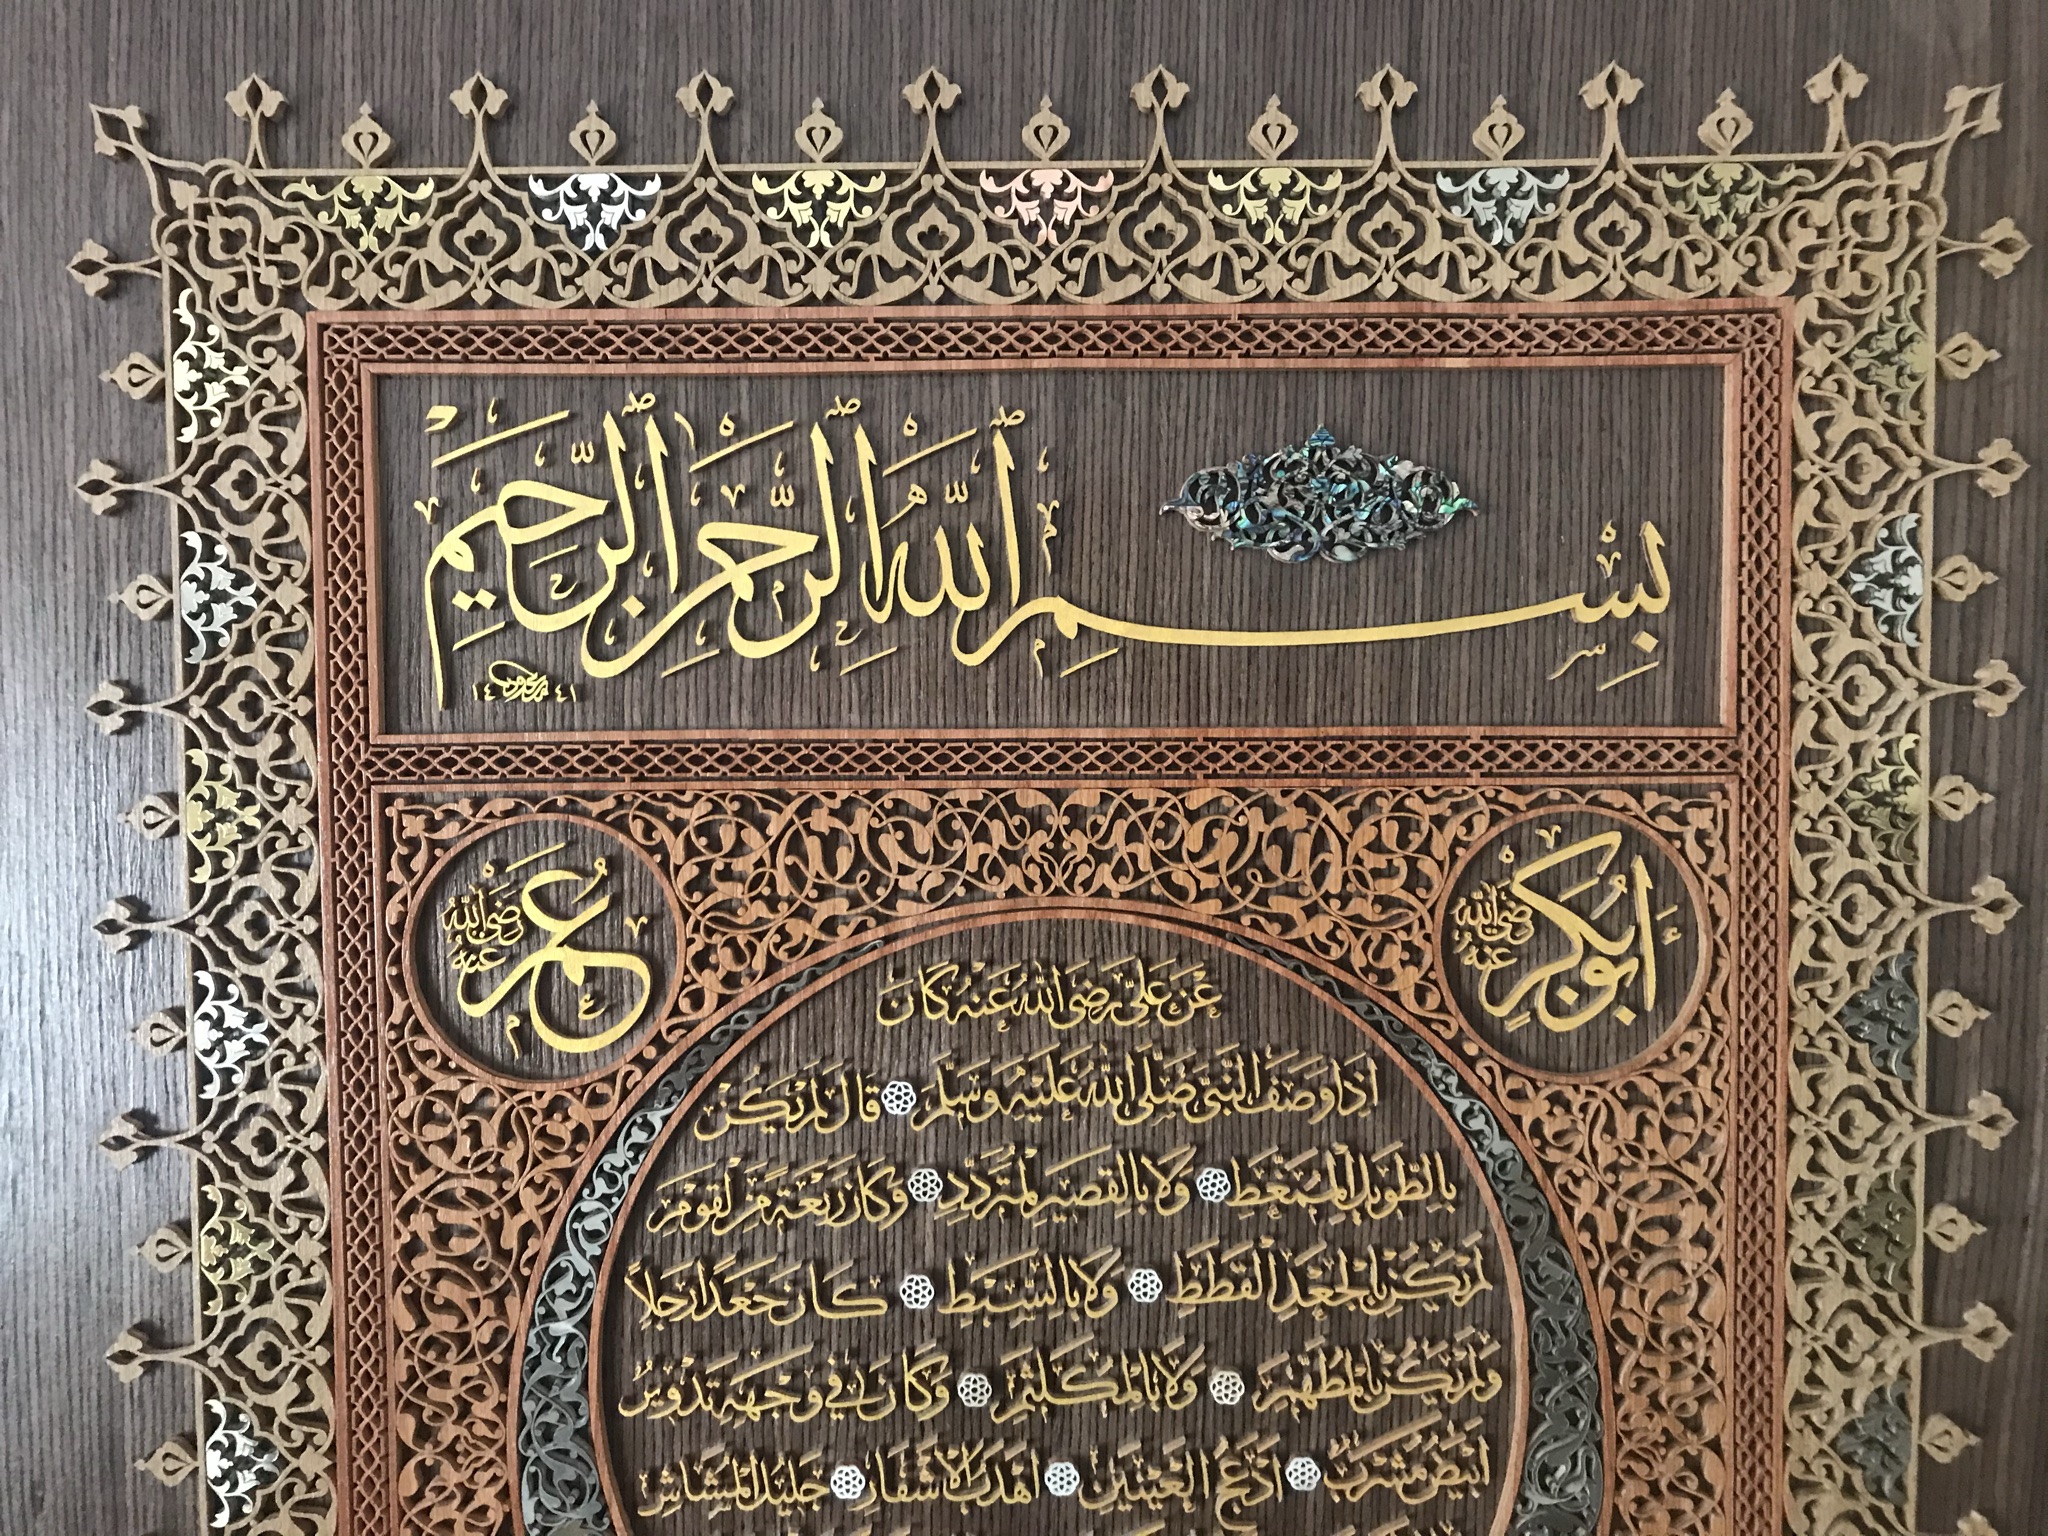 بِسْمِ ٱللَّهِ ٱلرَّحْمَٰنِ ٱلرَّحِيمِ
١٤٤١
أَبُو بَكْرٍ رَضِيَ اللَّهُ عَنْهُ
عُمَرُ رَضِيَ اللَّهُ عَنْهُ
عَنْ عَلِيٍّ رَضِيَ اللَّهُ عَنْهُ كَانَ
إِذَا وَصَفَ النَّبِيَّ صَلَّى اللَّهُ عَلَيْهِ وَسَلَّمَ قَالَ لَمْ يَكُنْ
بِالطَّوِيلِ الْمُمَّغِطِ وَلَا بِالْقَصِيرِ الْمُتَرَدِّدِ وَكَانَ رَبْعَةً مِنَ الْقَوْمِ
لَمْ يَكُنْ بِالْجَعْدِ الْقَطَطِ وَلَا بِالسَّبِطِ كَانَ جَعْدًا رَجِلًا
وَلَمْ يَكُنْ بِالْمُطَهَّمِ وَلَا بِالْمُكَلْثَمِ وَكَانَ فِي وَجْهِهِ تَدْوِيرٌ
أَبْيَضُ مُشْرَبٌ أَدْعَجُ الْعَيْنَيْنِ أَهْدَبُ الْأَشْفَارِ جَلِيلُ الْمُشَاشِ